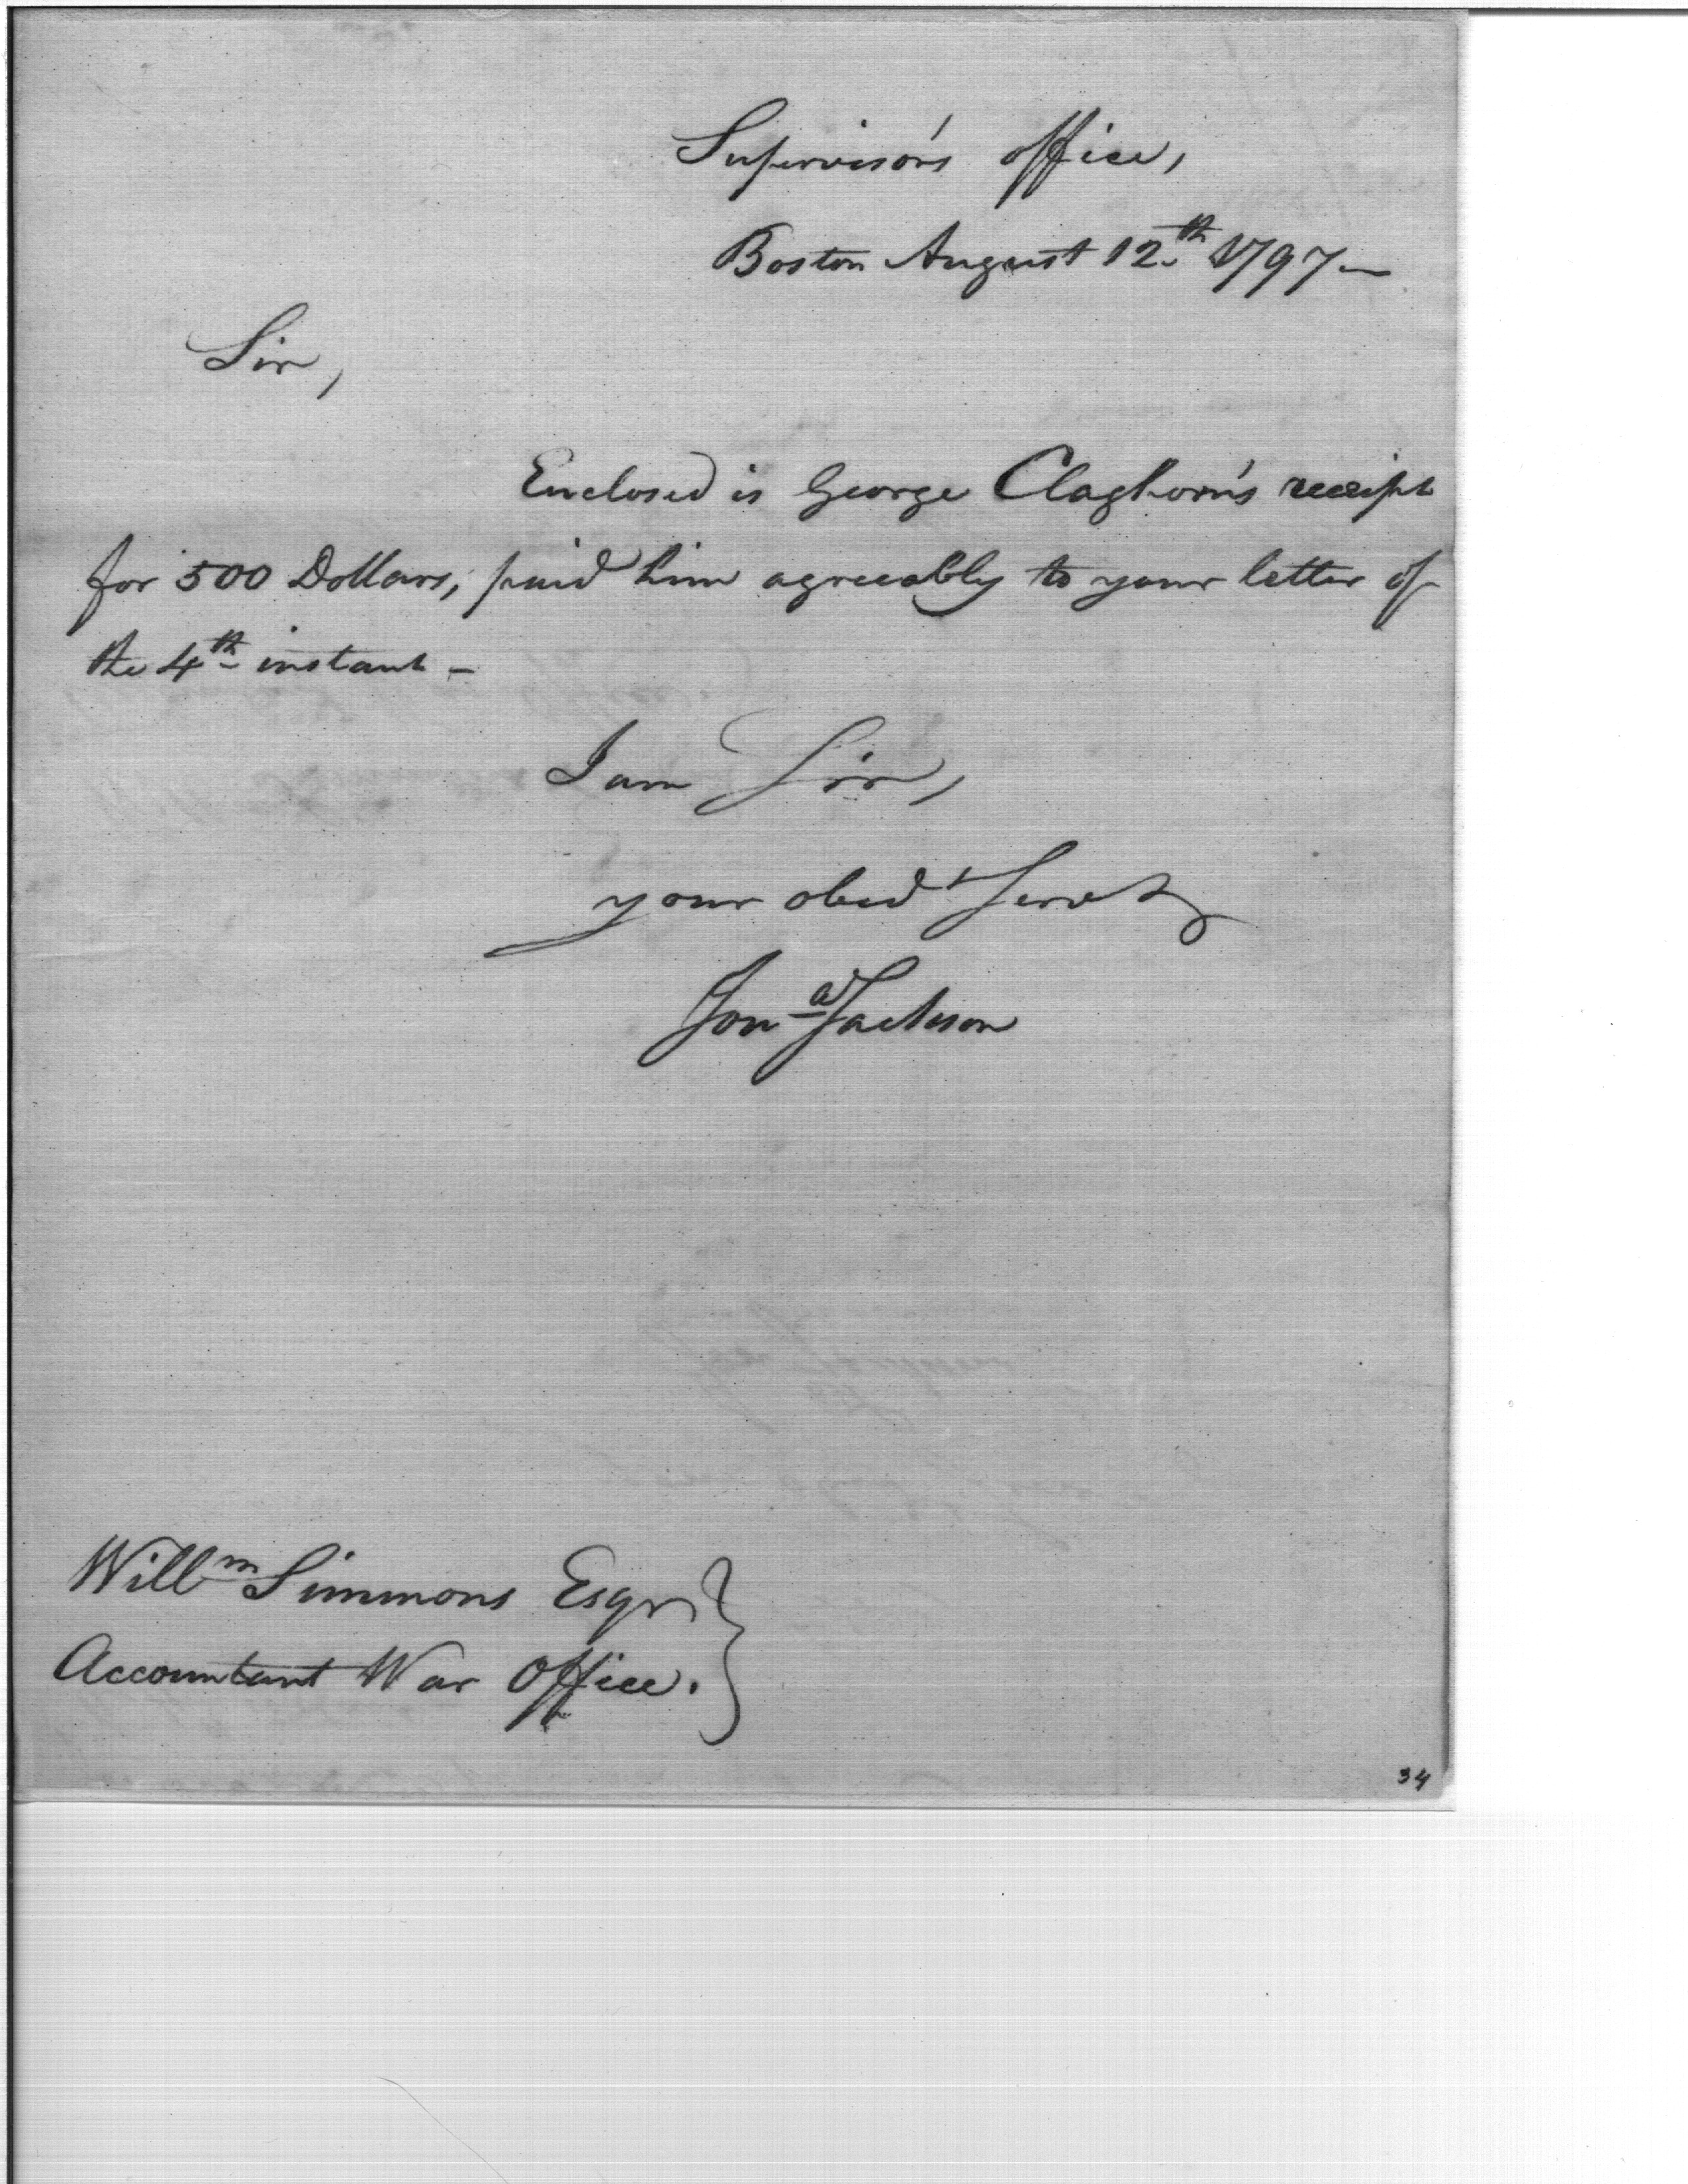 Supervisor's office,
Boston August 12th 1797—
Sir,
Enclosed is George Claghorn's receipt
for 500 Dollars, paid him agreeably to your letter of
the 4th instant –
I am Sir,
your obedt Servt
Jona Jackson
Willm Simmons Esqr
Accountant War Office.
34